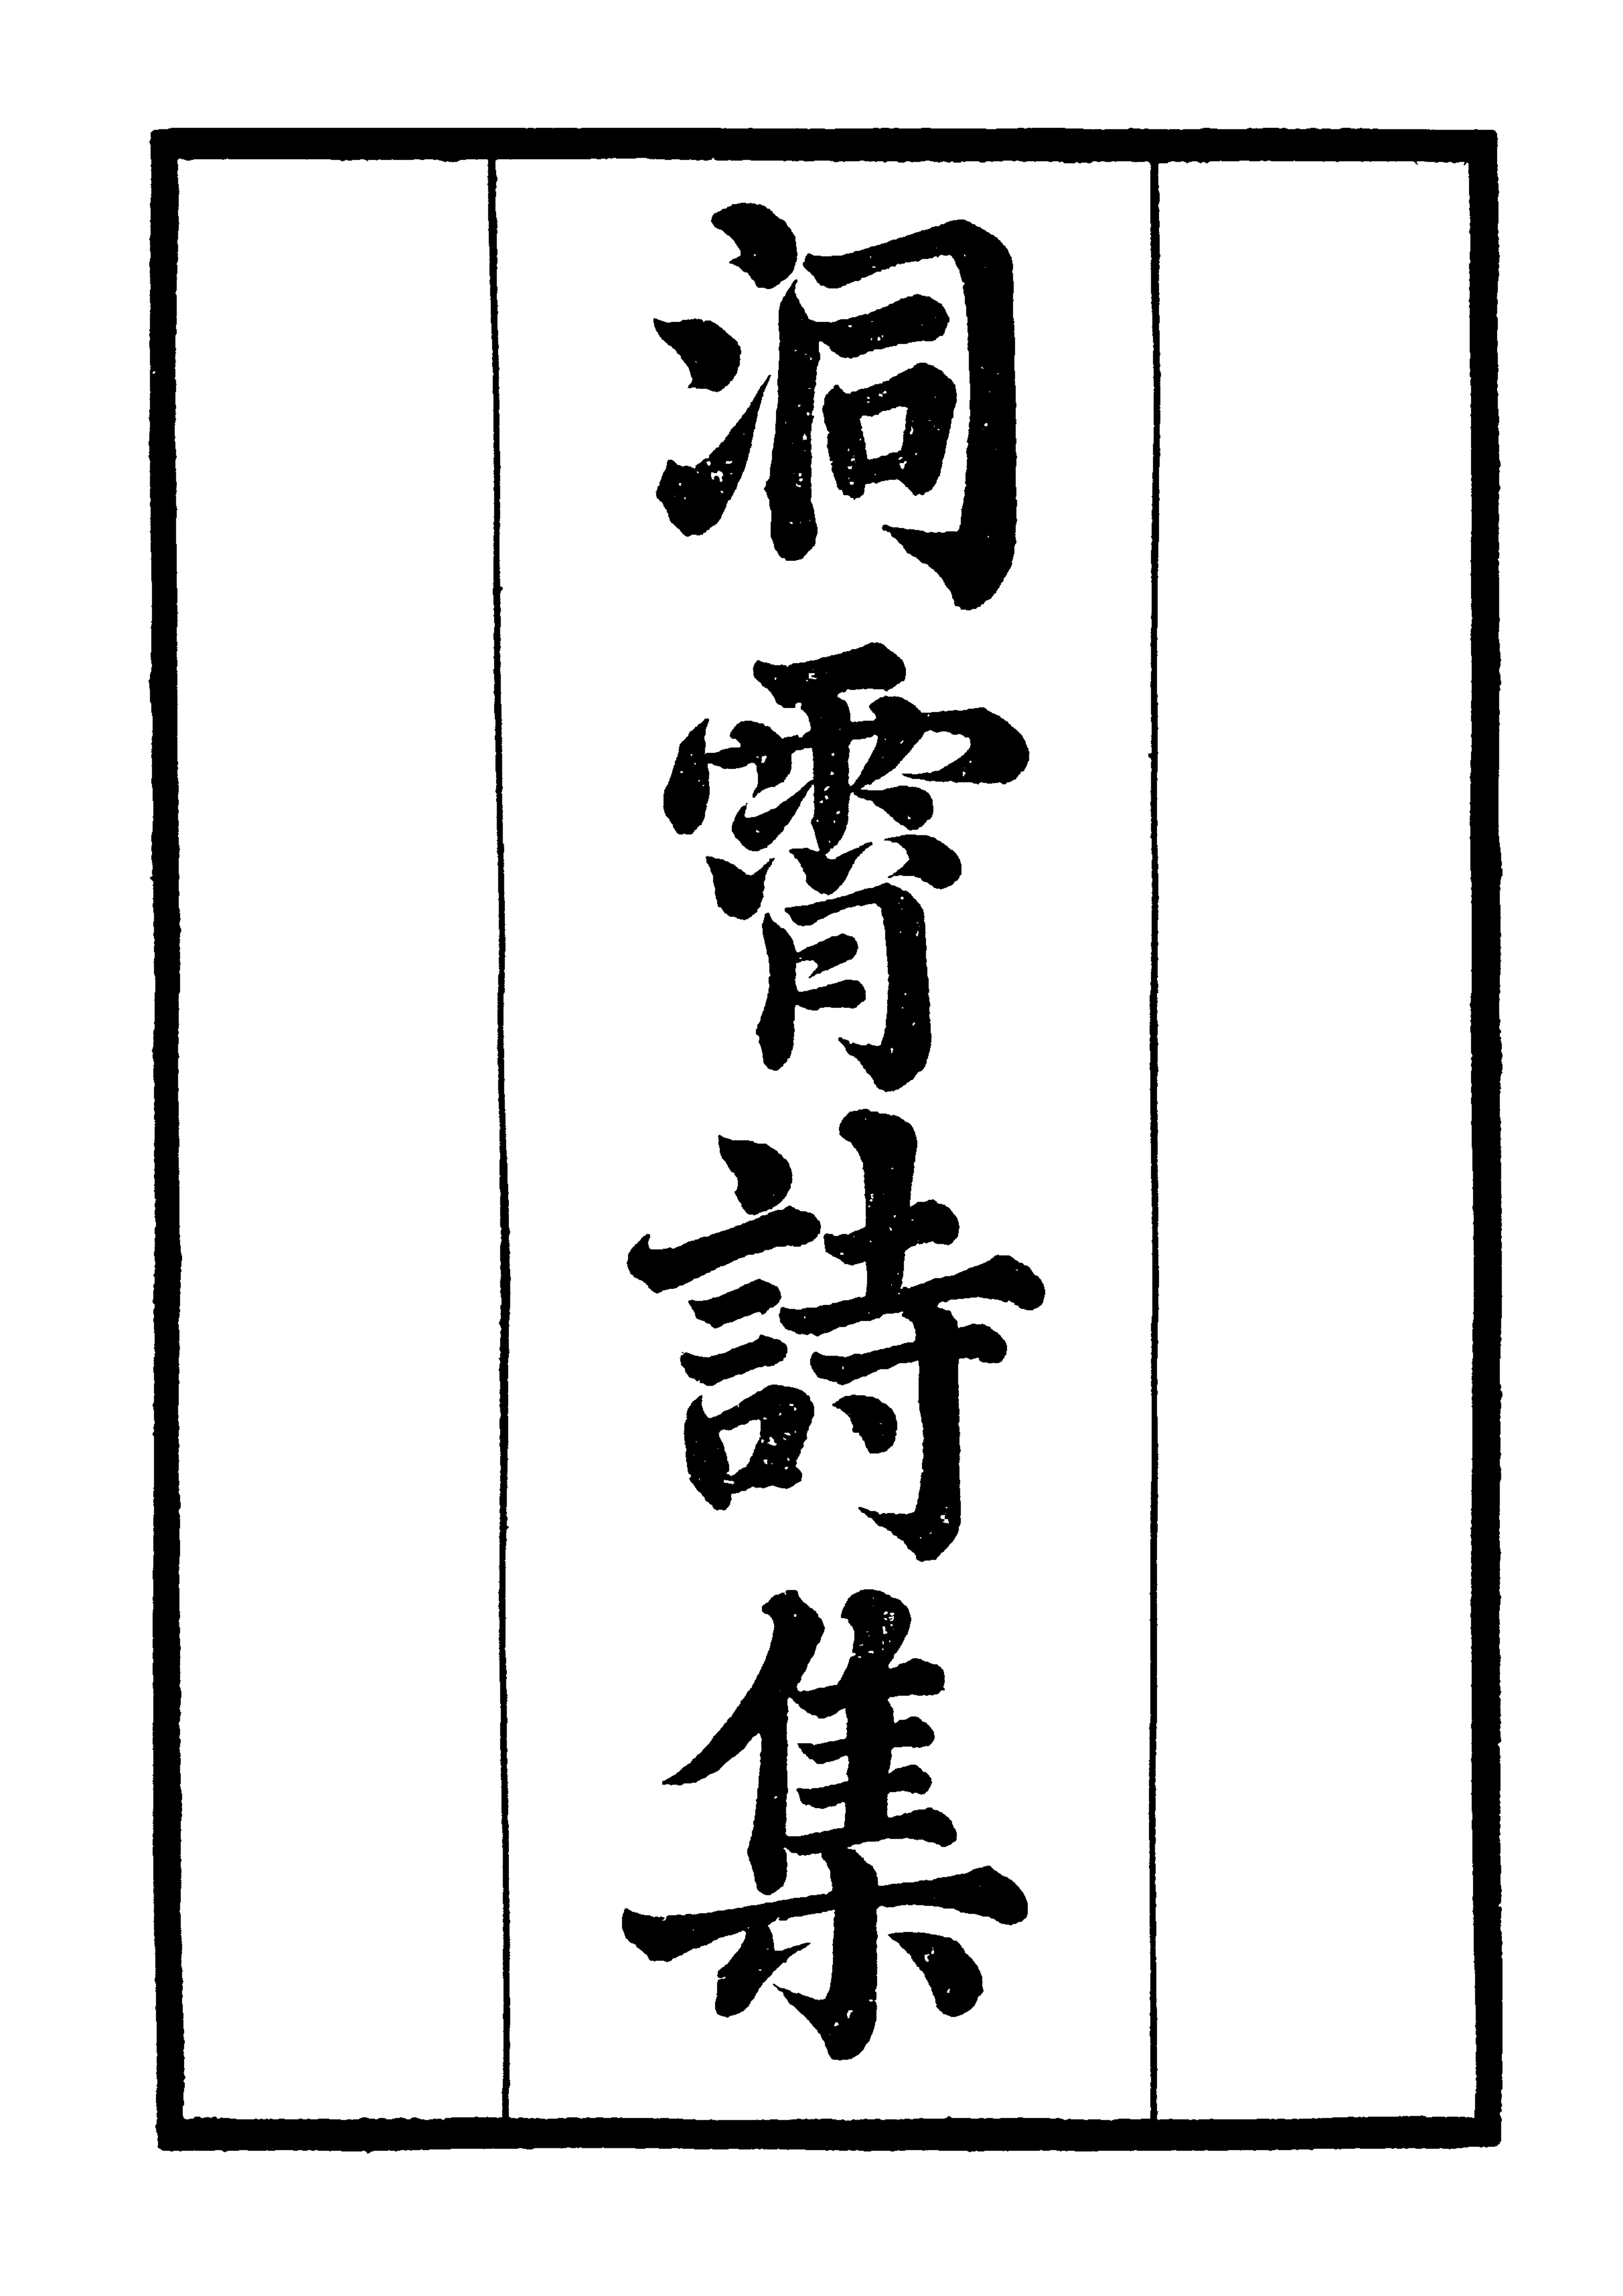 洞霄詩集